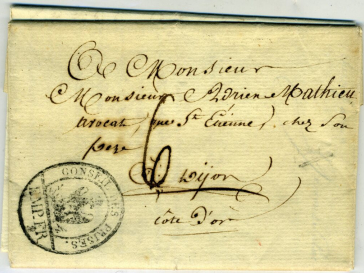 A Monsieur
Monsieur Adrien Mathieu
avocat, rue St Etienne, chez son
pere
6
à Dijon
côte d'or
CONSEIL DES PRISES.
EMP. FR.